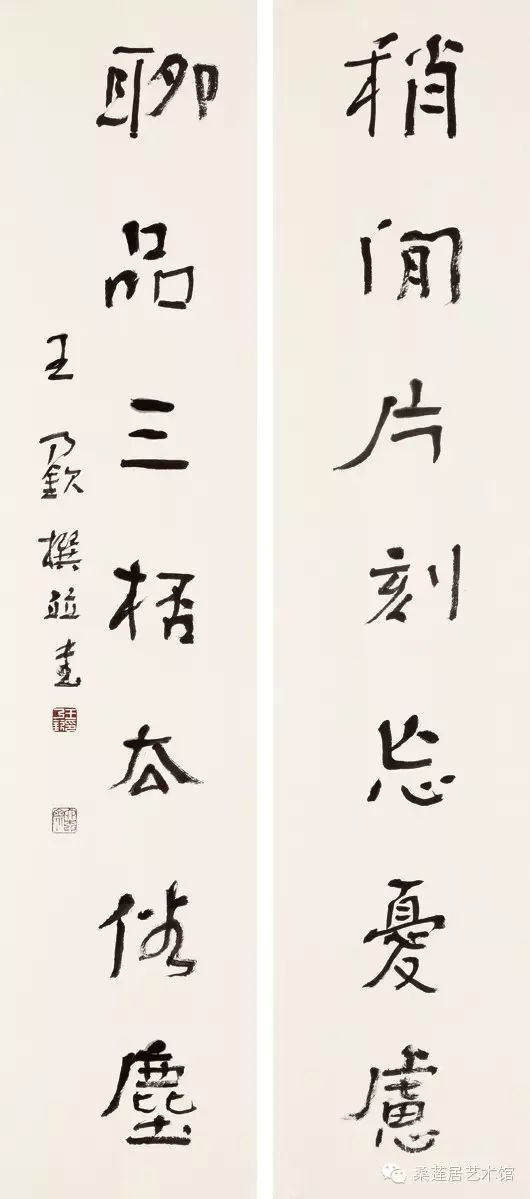 稍閒片刻忘憂慮
聊品三桮厺俗塵
王乃欽撰並書
桑莲居艺术馆